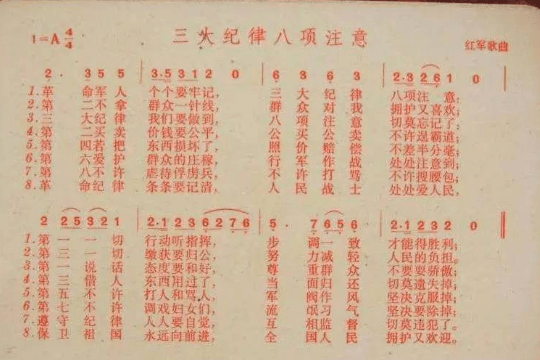 三大纪律八项注意
1=A 4/4
红军歌曲
2 3 5 5 3·5 3 1 2 0 6 3 6 3 2·3 2 6 1 0
1.革 命军人 个个要牢记 三大纪律 八项注意;
2.第 二不拿 群众一针线 群众对我 拥护又喜欢;
3.三 大纪律 我们要做到 八项注意 切莫忘记了;
4.第 二买卖 价钱要公平 公买公卖 不许逞霸道;
5.第 四若把 东西损坏了 照价赔偿 不差半分毫;
6.第 六爱护 群众的庄稼 行军作战 处处注意到;
7.第 八不许 虐待俘虏兵 不许打骂 不许搜腰包;
8.革 命纪律 条条要记清 人民战士 处处爱人民;
2 2 5 3 2 1 2·1 2 3 6 2 7 6 5· 7 6 5 6 2·1 2 3 2 0
1.第 一一切 行动听指挥 步调一致 才能得胜利。
2.第 三一切 缴获要归公 努力减轻 人民的负担。
3.第 一说话 态度要和好 尊重群众 不要耍骄傲;
4.第 三借人 东西用过了 当面归还 切莫遗失掉;
5.第 五不许 打人和骂人 军阀作风 坚决克服掉;
6.第 七不许 调戏妇女们 流氓习气 坚决要除掉;
7.遵 守纪律 人人要自觉 互相监督 切莫违犯了
8.保 卫祖国 永远向前进 全国人民 拥护又欢迎。